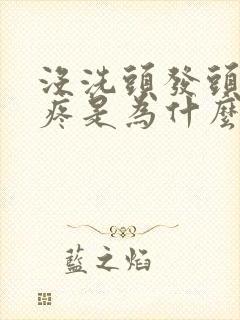 沒洗頭發頭
疼是為什麼
藍之焰